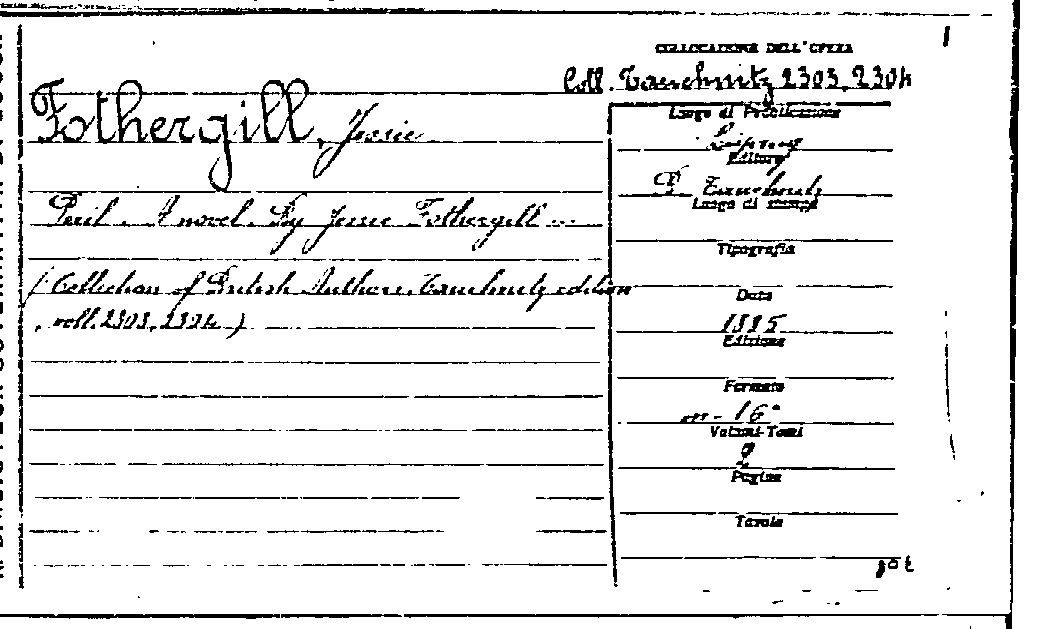 COLLOCAZIONE DELL'OPERA
Coll. Tauchnitz 2303, 2304
Fothergill, Jessie
Peril. A novel. By Jessie Fothergill ...
(Collection of British Authors, Tauchnitz edition
, voll. 2303, 2304)
Luogo di Pubblicazione
Leipzig
Editore
B. Tauchnitz
Luogo di stampa
Tipografia
Data
1885
Edizione
Formato
in-16°
Volumi-Tomi
2
Pagine
Tavole